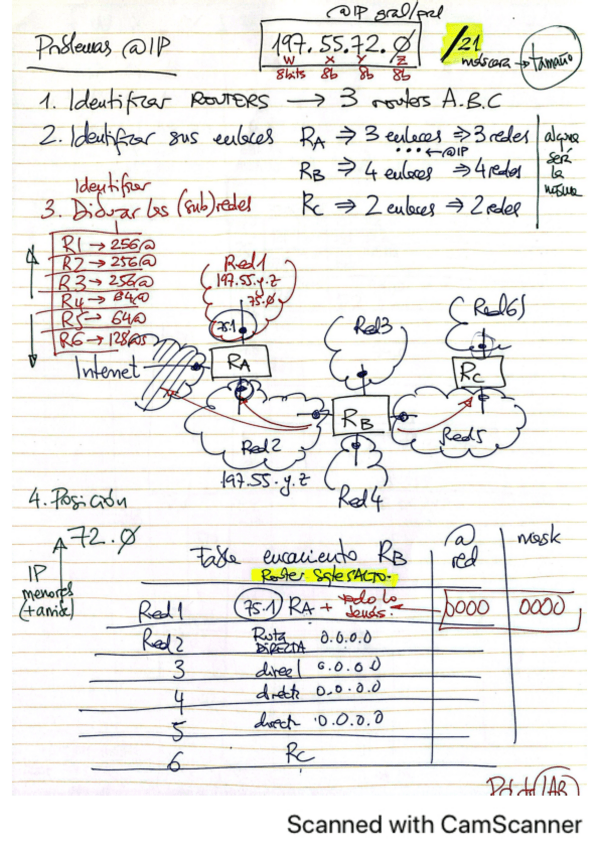 @IP gral/pral
Problemas @IP
197.55.72.Ø /21
máscara → tamaño
W X Y Z
8bits 8b 8b 8b
1. Identificar ROUTERS → 3 routers A.B.C
2. Identificar sus enlaces RA ⇒ 3 enlaces ⇒ 3 redes
← @IP
RB ⇒ 4 enlaces ⇒ 4 redes
RC ⇒ 2 enlaces ⇒ 2 redes
alguna
será
la
misma
Identificar
3. Dibujar las (sub)redes
R1 → 256@
R2 → 256@
R3 → 256@
R4 → 64@
R5 → 64@
R6 → 128@s
Red1
197.55.y.z
75.Ø
75.1
Internet
RA
Red2
197.55.y.z
Red3
RB
Red4
Red5
Red6
RC
4. Posición
72.Ø
IP
menores
(+ tamaño)
Tabla encaminamiento RB
Router SgteSALTO
@
red
mask
Red 1 75.1 RA + todo lo
demás. 0000 0000
Red 2 Ruta
DIRECTA 0.0.0.0
3 direct 0.0.0.0
4 direct 0.0.0.0
5 direct 0.0.0.0
6 RC
Scanned with CamScanner